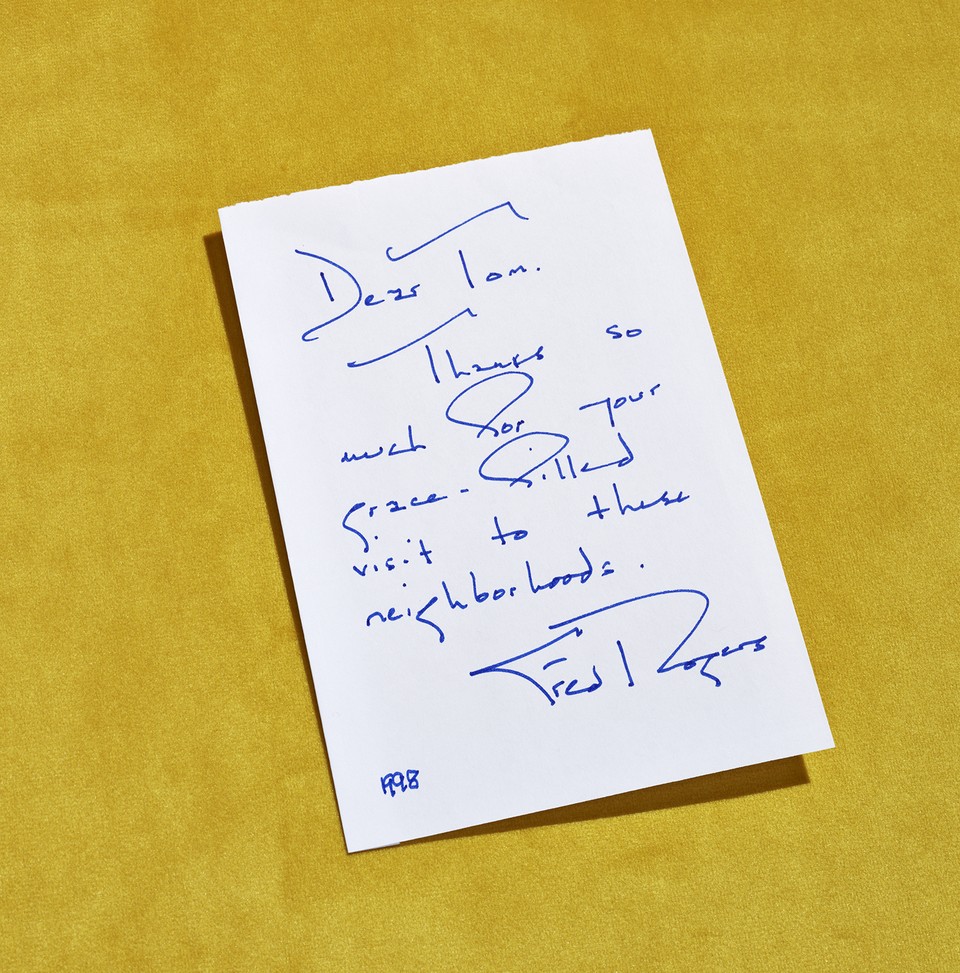 Dear Tom.
Thanks so
much for your
grace-filled
visit to these
neighborhoods.
Fred Rogers
1998